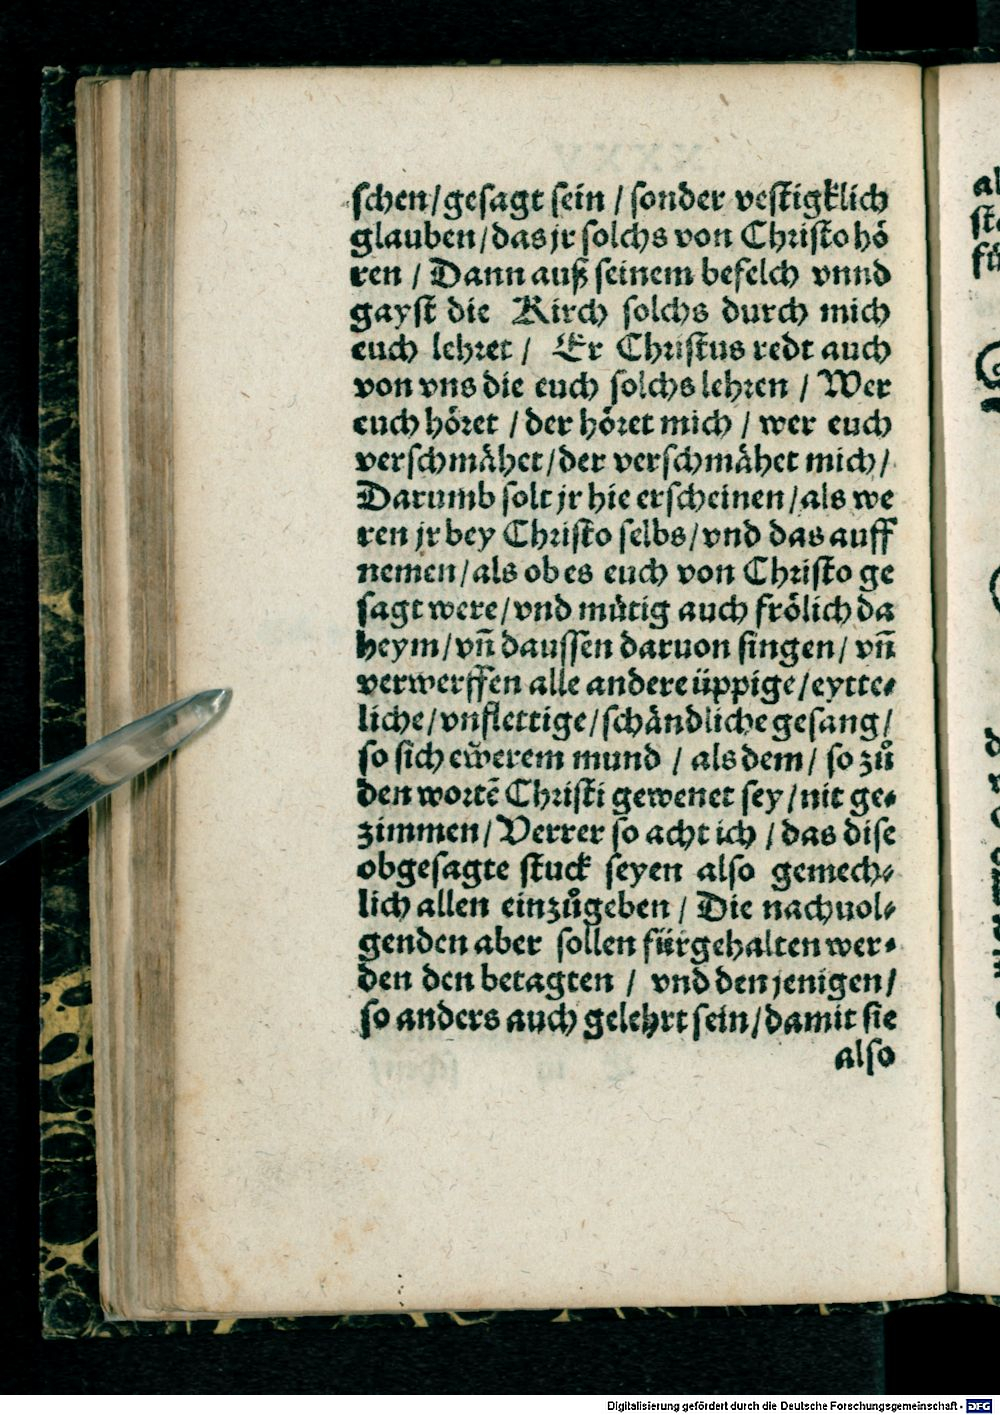 schen/gesagt sein / sonder vestigklich
glauben/das jr solchs von Christo hö
ren / Dann auß seinem befelch vnnd
gayst die Kirch solchs durch mich
euch lehret / Er Christus redt auch
von vns die euch solchs lehren / Wer
euch höret / der höret mich / wer euch
verschmähet/der verschmähet mich/
Darumb solt jr hie erscheinen/als we
ren jr bey Christo selbs/vnd das auff
nemen/als ob es euch von Christo ge
sagt were/vnd mütig auch frölich da
heym/vñ daussen daruon singen/ vñ
verwerffen alle andere üppige/eytte⸗
liche/vnflettige/schändliche gesang/
so sich ewerem mund / als dem/ so zů
den wortē Christi gewenet sey/nit ge⸗
zimmen/Verrer so acht ich / das dise
obgesagte stuck seyen also gemech⸗
lich allen einzůgeben / Die nachuol⸗
genden aber sollen fürgehalten wer⸗
den den betagten / vnd den jenigen/
so anders auch gelehrt sein/damit sie
also
al
Digitalisierung gefördert durch die Deutsche Forschungsgemeinschaft - DFG